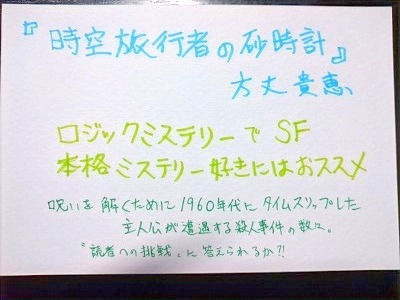 『時空旅行者の砂時計』
方丈貴恵
ロジックミステリーでSF
本格ミステリー好きにはおススメ
呪いを解くために1960年代にタイムスリップした
主人公が遭遇する殺人事件の数々。
"読者への挑戦"に答えられるか?!